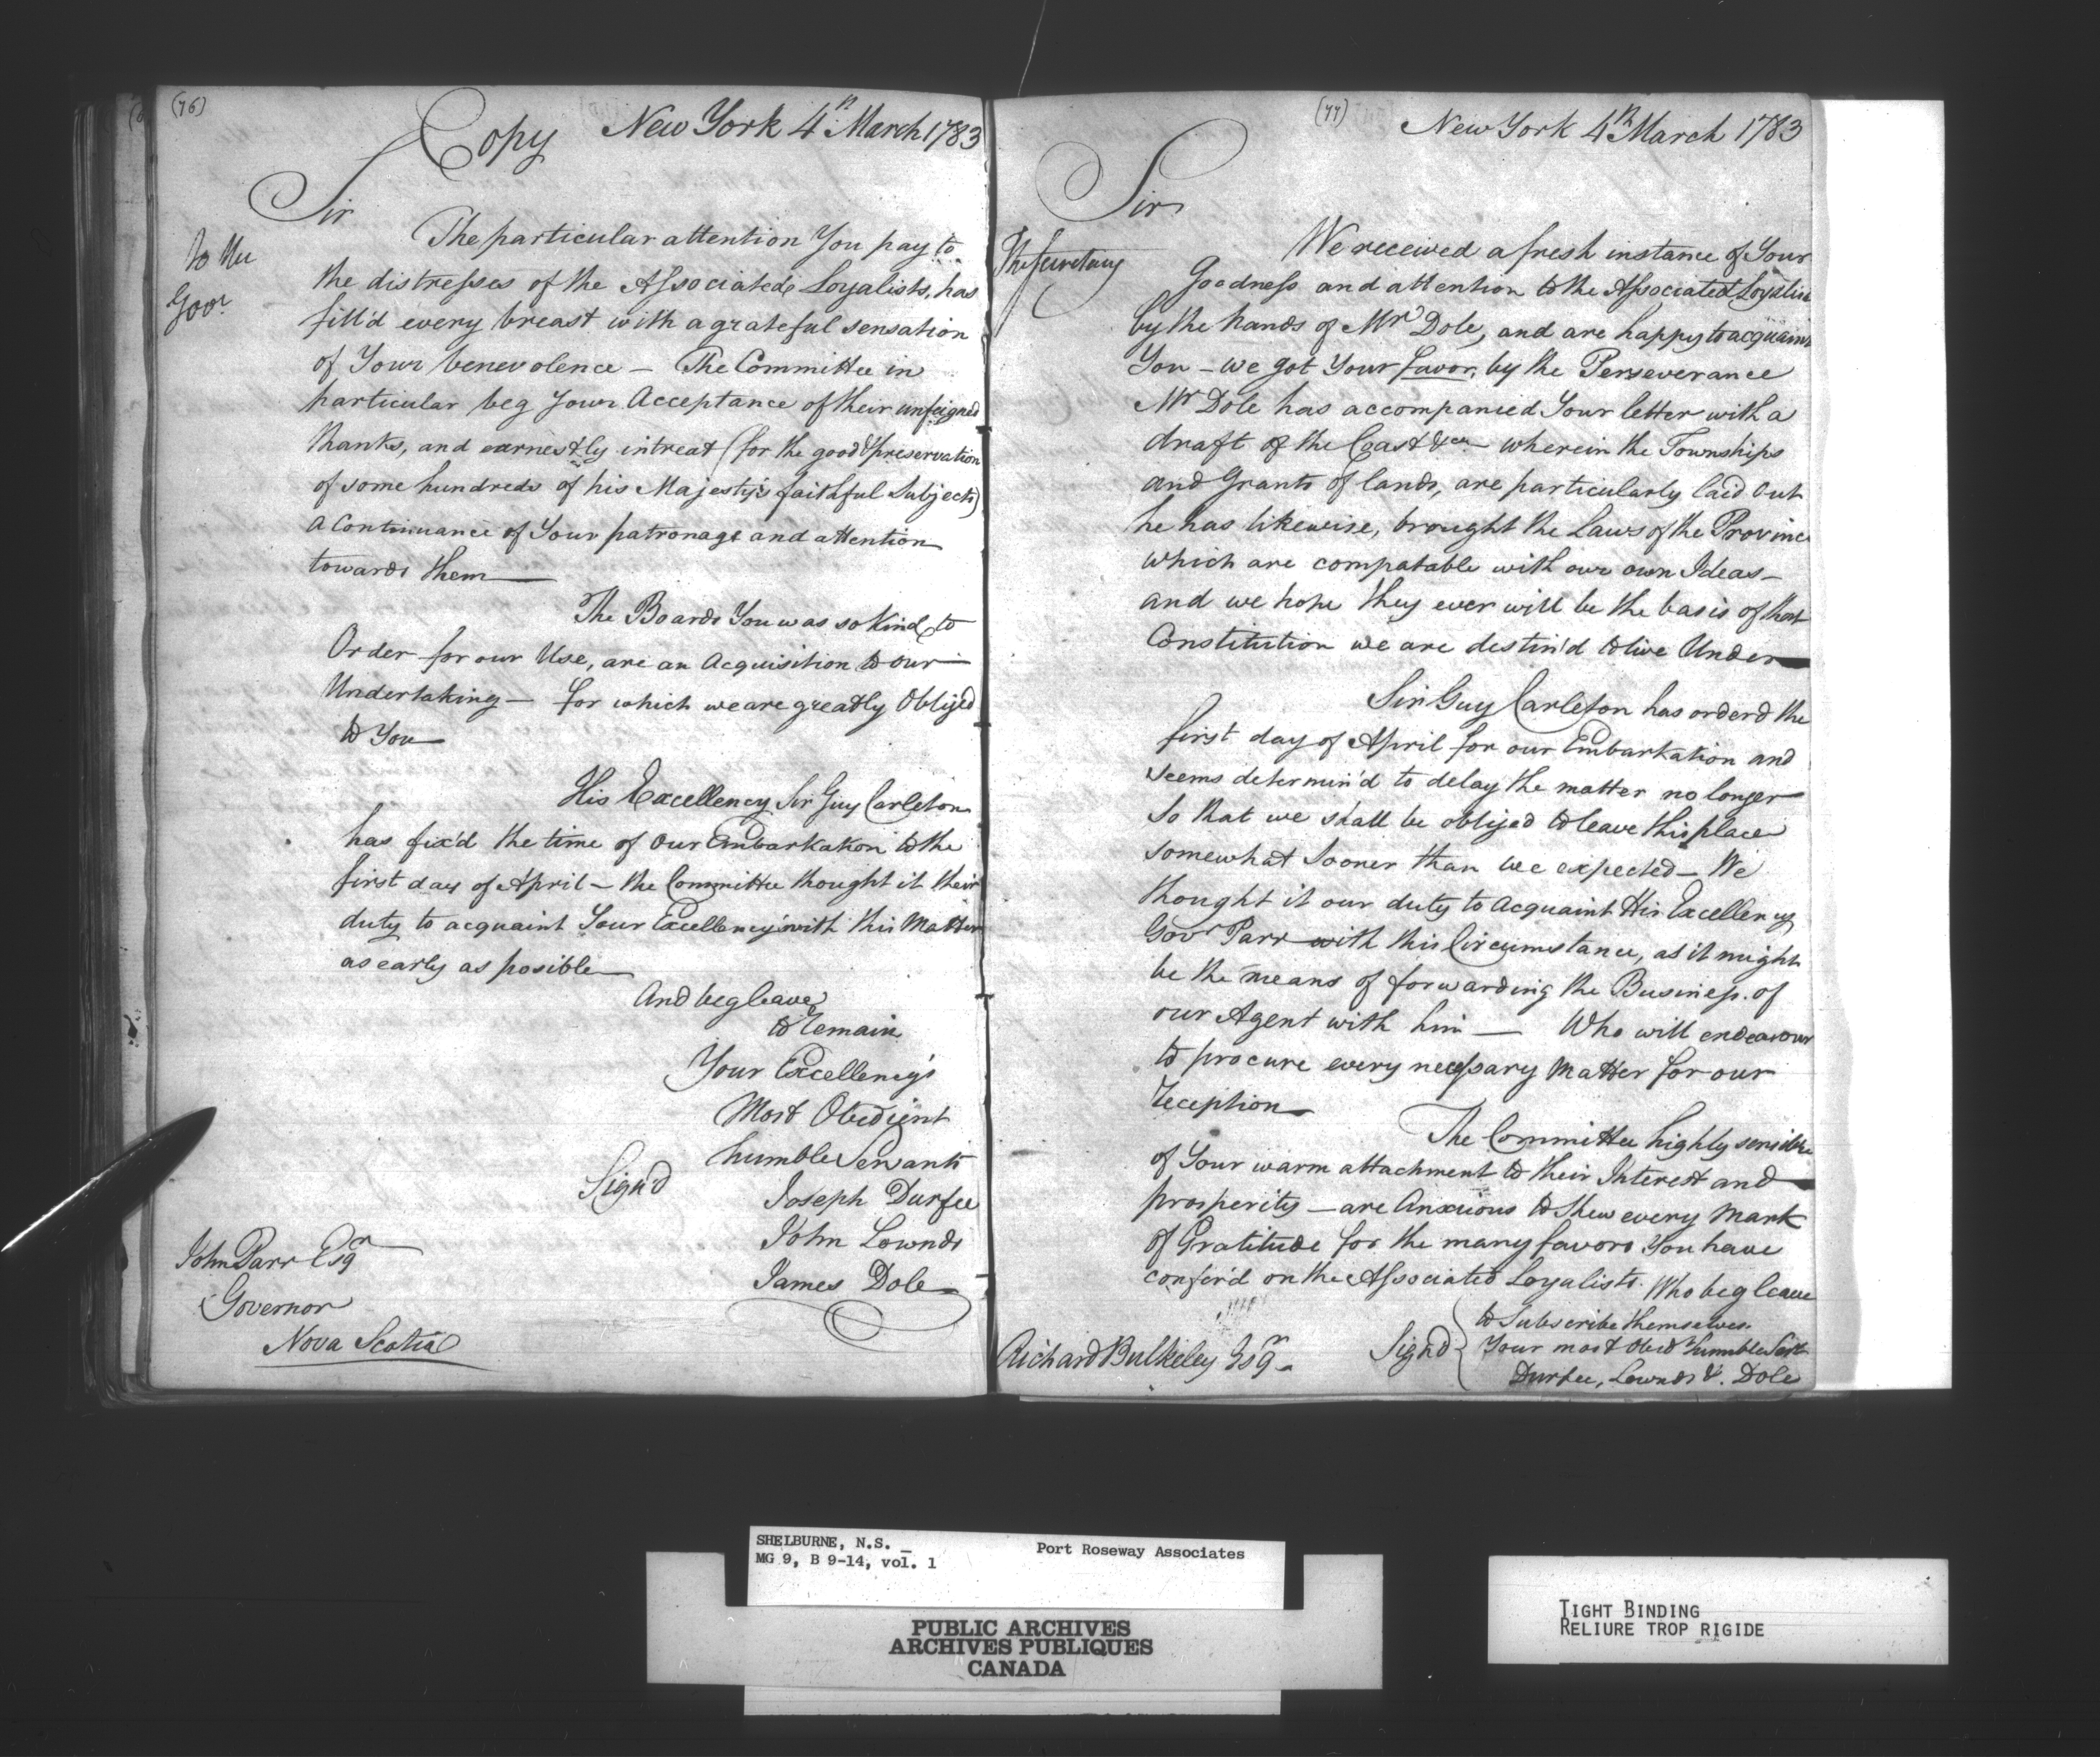 (76)
Copy New York 4th March 1783
Sir
To the
Govr.
The particular attention You pay to
the distresses of the Associated Loyalists, has
fill'd every breast with a grateful sensation
of Your benevolence – The Committee in
particular beg Your Acceptance of their unfeigned
thanks, and earnestly intreat (for the good & preservation
of some hundreds of his Majesty's faithful Subjects)
a Continuance of Your patronage and attention
towards them —
The Boards You was so Kind to
Order for our Use, are an Acquisition to our
Undertaking – for which we are greatly Obliged
to You —
His Excellency Sir Guy Carleton
has fix'd the time of our Embarkakon to the
first day of April – the Committee thought it their
duty to acquaint Your Excellency with this Matter
as early as posible —
And beg leave
to remain
Your Excellency's
Most Obedient
humble Servants
Sign'd
Joseph Durfee
John Lownds
James Dole
John Parr Esqr
Governor
Nova Scotia
(77)
New York 4th March 1783
Sir
The Secretary
We received a fresh instance of Your
Goodness and attention to the Associated Loyalists
by the hands of Mr Dole, and are happy to acquaint
You – we got Your favor, by the Perseverance
Mr Dole has accompanied Your letter with a
draft of the Coast &ca – wherein the Townships
and Grants of lands, are particularly laid Out
he has likewise, brought the Laws of the Province
which are compatable with our own Ideas –
and we hope they ever will be the basis of that
Constitution we are destin'd to live Under —
Sir Guy Carleton has orderd the
first day of April for our Embarkation and
seems determin'd to delay the matter no longer
So that we shall be obliged to leave this place
somewhat sooner than we expected – We
thought it our duty to acquaint His Excellency
Govr Parr with this Circumstance, as it might
be the means of forwarding the Business. of
our Agent with him — Who will endeavour
to procure every necessary Matter for our
reception —
The Committee highly sensible
of Your warm attachment to their Interest and
prosperity – are Anxious to shew every Mark
of Gratitude for the many favors You have
confer'd on the Associated Loyalists. Who beg leave
to Subscribe themselves.
Sign'd { Your most Obedt humble Sert
Durfee, Lownds & Dole
Richard Bulkeley Esqr.
SHELBURNE, N.S. – Port Roseway Associates
MG 9, B 9-14, vol. 1
PUBLIC ARCHIVES
ARCHIVES PUBLIQUES
CANADA
TIGHT BINDING
RELIURE TROP RIGIDE